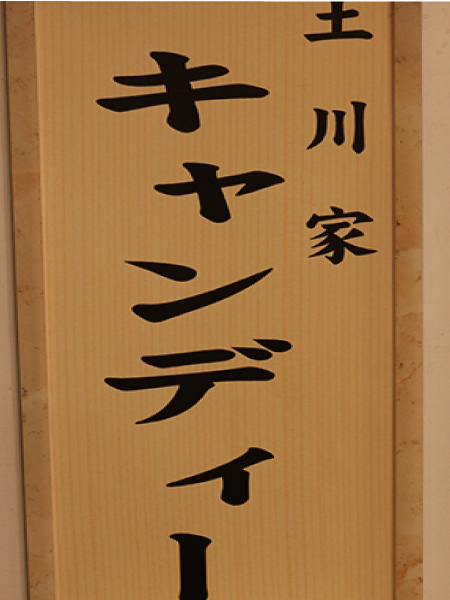 土川家
キャンディー